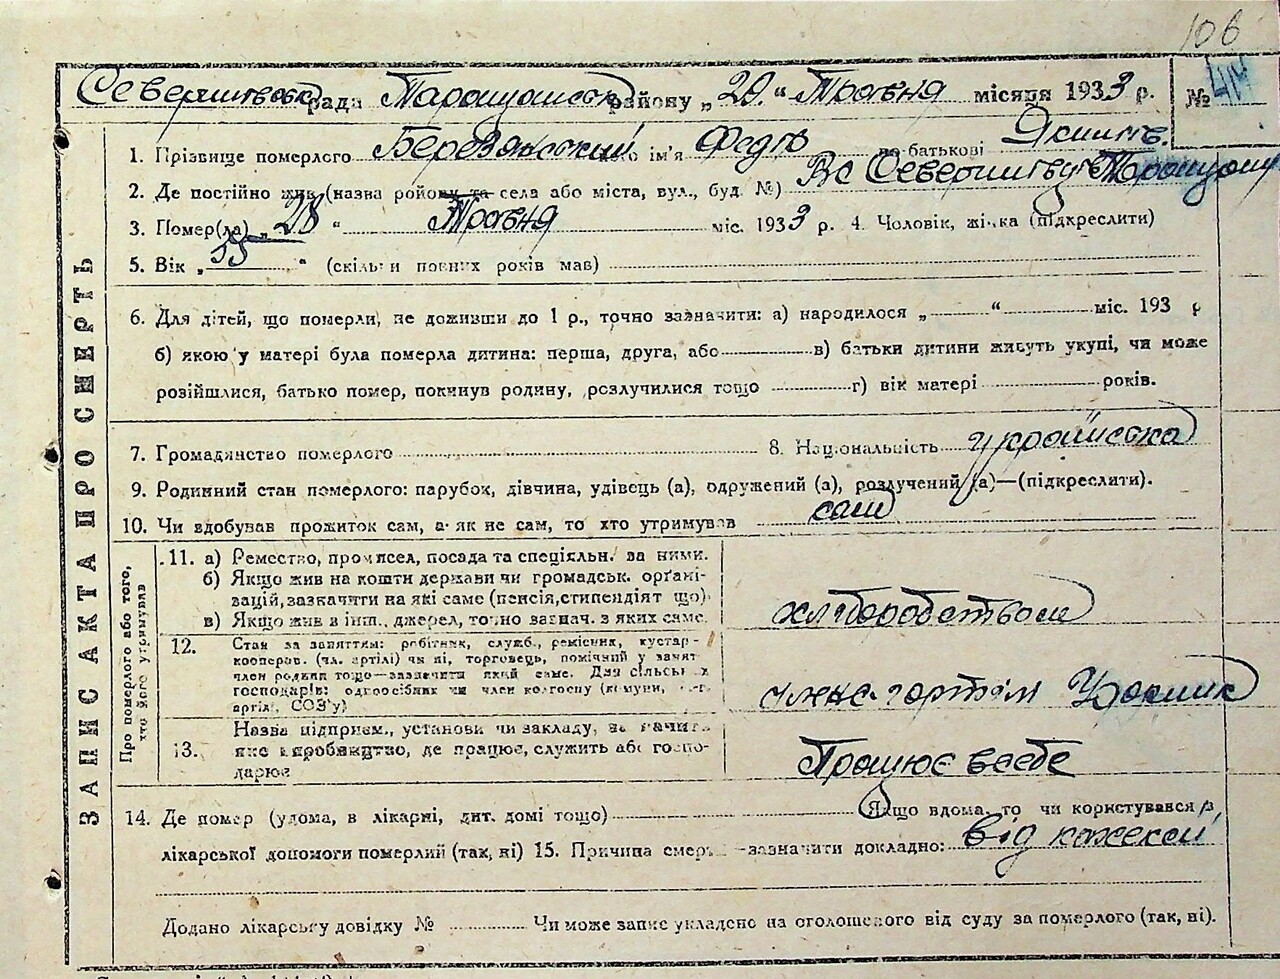 106
Северинівська рада Таращанськ району „29.“ Травня місяця 1933 р. №
ЗАПИС АКТА ПРО СМЕРТЬ
1. Прізвище померлого ім'я Федір по батькові Якимів.
2. Де постійно жив (назва ройону та села або міста, вул., буд. №)
3. Помер(ла) „28“ Травня міс. 1933 р. 4. Чоловік, жінка (підкреслити)
5. Вік „55“ (скільки повних років мав)
6. Для дітей, що померли, не доживши до 1 р., точно зазначити: а) народилося „ “ міс. 193 р
б) якою у матері була померла дитина: перша, друга, або в) батьки дитини живуть укупі, чи може
розійшлися, батько помер, покинув родину, розлучилися тощо г) вік матері років.
7. Громадянство померлого 8. Національність українська
9. Родинний стан померлого: парубок, дівчина, удівець (а), одружений (а), розлучений (а)—(підкреслити).
10. Чи здобував прожиток сам, а як не сам, то хто утримував сам
Про померлого або того,
хто його утримував
11. а) Ремество, промисел, посада та спеціяльн. за ними.
б) Якщо жив на кошти держави чи громадськ. орґані-
зацій, зазначити на які саме (пенсія, стипендіят що)
в) Якщо жив в інш., джерел, точно зазнач. з яких саме.
хліборобством
12. Стан за заняттям: робітник, служб., ремісник, кустар
кооперав. (чл. артілі) чи ні, торговець, помічний у занят
член родини тощо—зазначити який саме. Для сільськ х
господарів: одноосібник чи член колгоспу (комуни,
артілі, СОЗ'у)
13. Назва підприєм., установи чи закладу, за
яке виробництво, де працює, служить або госпо-
дарює
Працює в себе
14. Де помер (удома, в лікарні, дит. домі тощо) Якщо вдома, то чи користувався з
лікарської допомоги померлий (так, ні) 15. Причина смерт —зазначити докладно: від
Додано лікарську довідку № Чи може запис укладено на оголошеного від суду за померлого (так, ні).